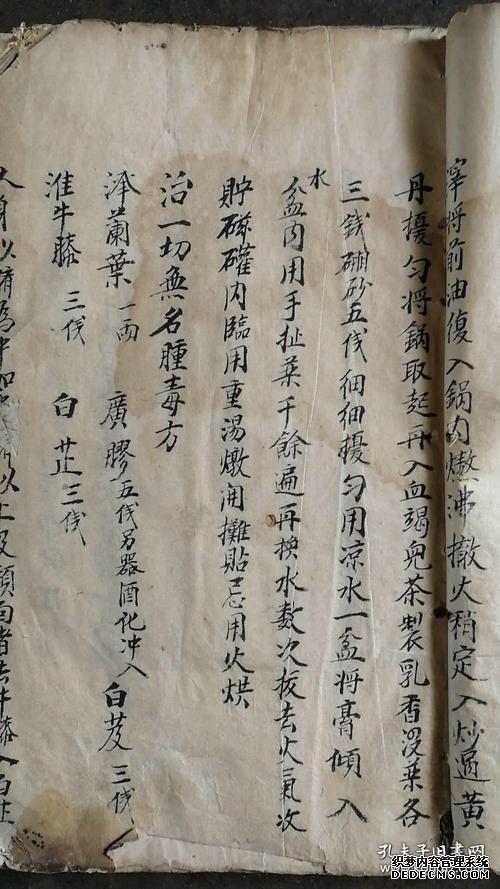 滓將前油復入鍋肉熬沸撤火稍定入炒過黃
丹擾匀將鍋取起再入血竭兒茶製乳香没葉各
三錢硼砂五伐細細擾匀用凉水一盆將膏傾入
水盆肉用手扯葉千餘遍再换水数次拔去火氣次
貯磁礶内臨用重湯燉開攤貼忌用火烘
治一切無名腫毒方
泽蘭葉一兩 廣膠五伐另器酒化冲入白芨三伐
淮牛膝三伐 白芷三伐
孔夫子旧书网
织梦内容管理系统
DEDECMS.COM